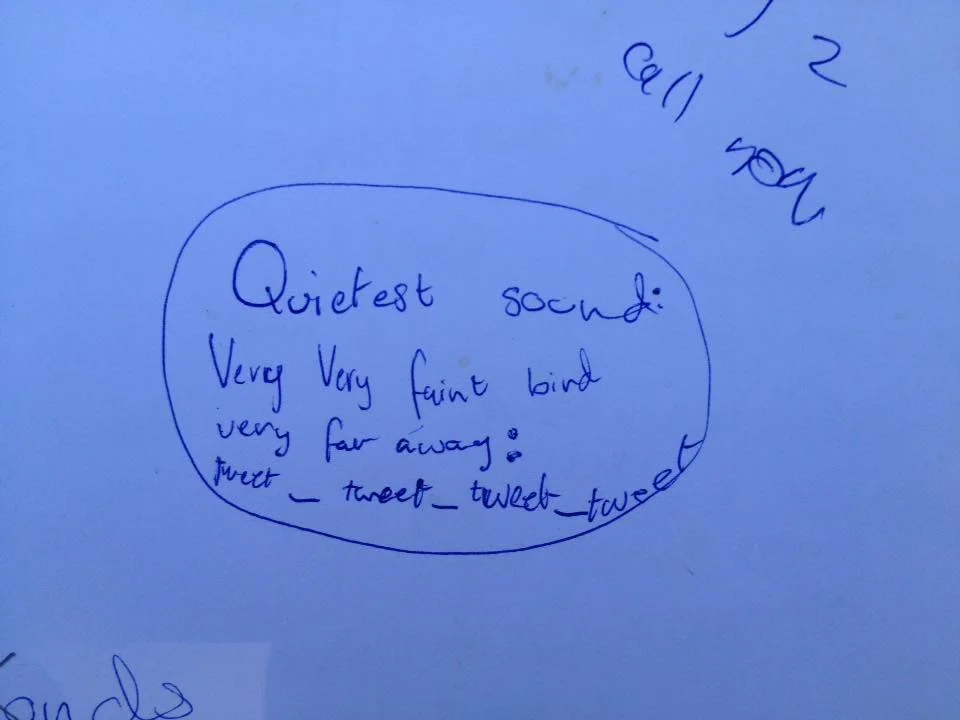 2
call
Quietest sound:
Very Very faint bird
very far away:
tweet _ tweet _ tweet _ tweet